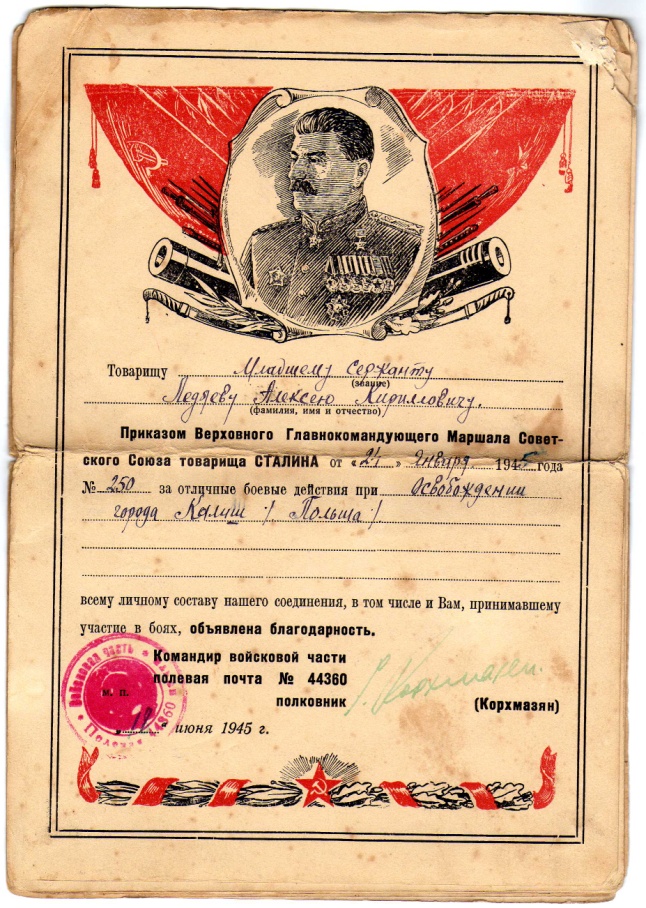 Товарищу Младшему Сержанту
(звание)
Ледяеву Алексею Кирилловичу.
(фамилия, имя и отчество)
Приказом Верховного Главнокомандующего Маршала Совет-
ского Союза товарища СТАЛИНА от «24» января 1945 года
№ 250 за отличные боевые действия при освобождении
города Калиш /. Польша /.
всему личному составу нашего соединения, в том числе и Вам, принимавшему
участие в боях, объявлена благодарность.
Командир войсковой части
полевая почта № 44360
полковник (Корхмазян)
м. п.
июня 1945 г.